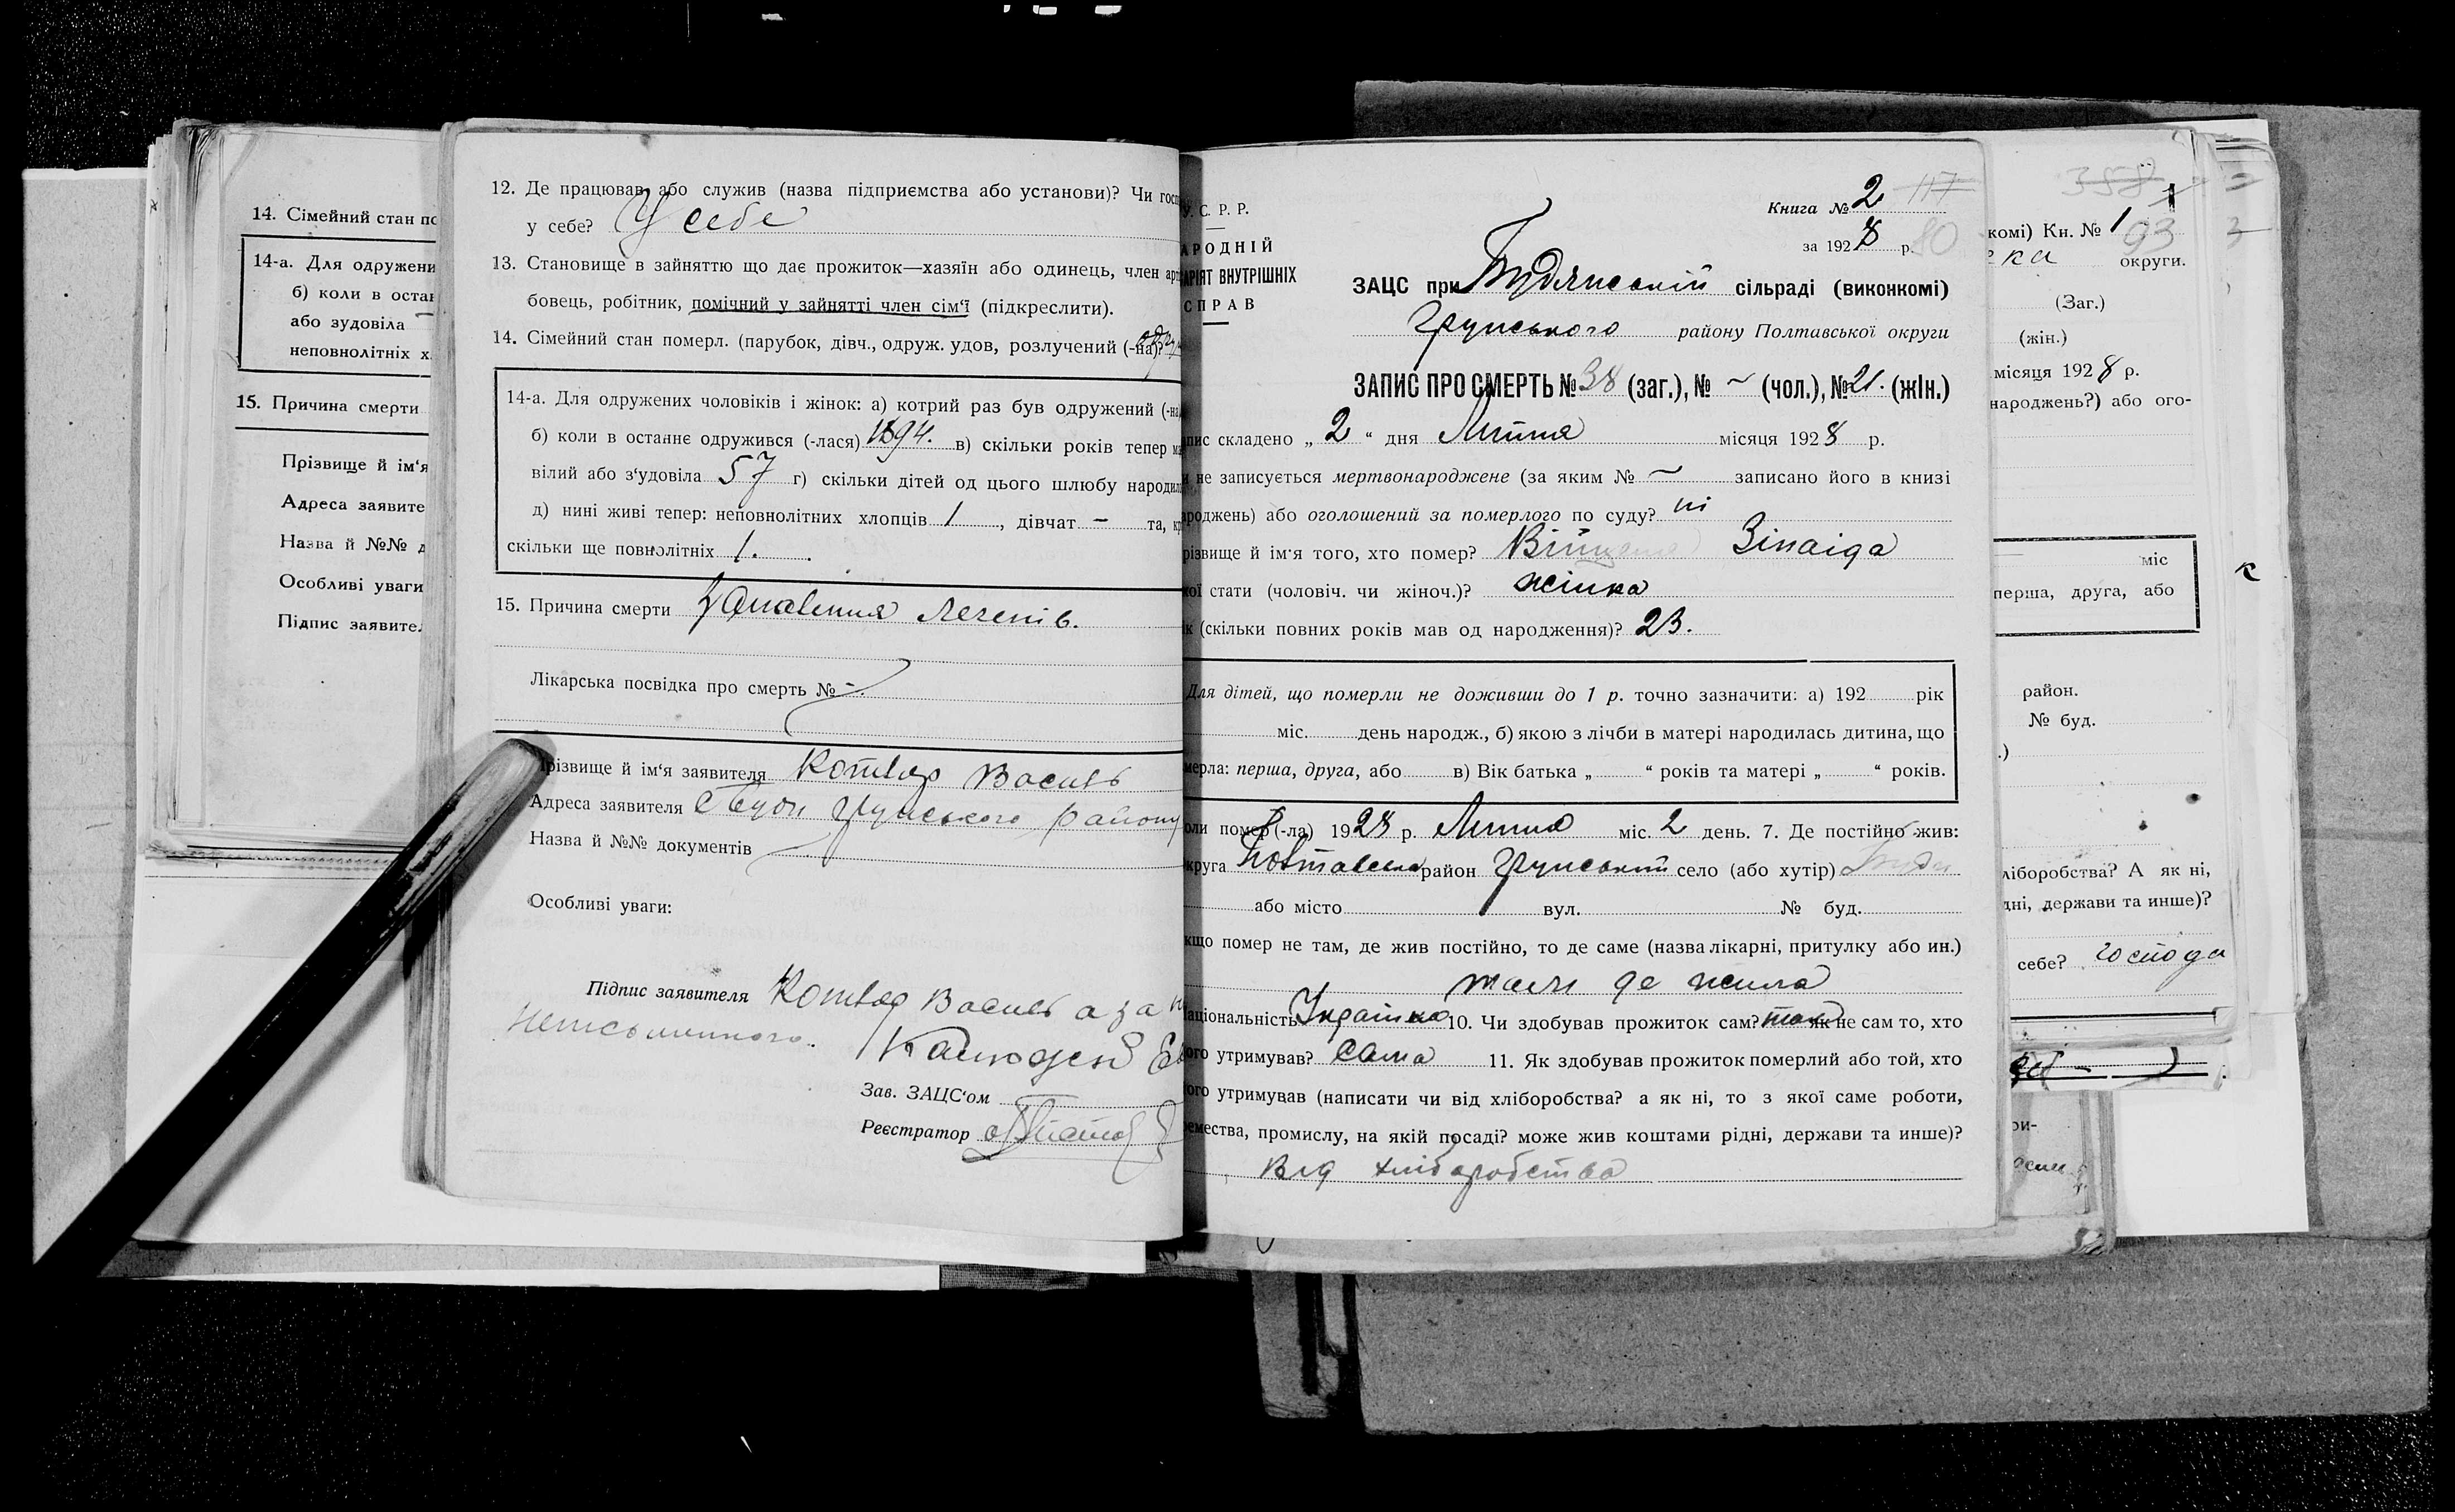 14. Сімейний стан по
14-а. Для одружени
б) коли в остан
або зудовіла —
неповнолітніх х
15. Причина смерти
Прізвище й ім'я
Адреса заявите
Назва й №№ д
Особливі уваги
Підпис заявите
12. Де працював або служив (назва підприємства або установи)? Чи госп
у себе? У себе
13. Становище в зайняттю що дає прожиток—хазяїн або одинець, член арт
бовець, робітник, помічний у зайнятті член сім'ї (підкреслити).
14. Сімейний стан померл. (парубок, дівч., одруж. удов, розлучений (-на)?
14-а. Для одружених чоловіків і жінок: а) котрий раз був одружений (-на
б) коли в останнє одружився (-лася) 1894. в) скільки років тепер ма
вілий або з'удовіла 57 г) скільки дітей од цього шлюбу народил
д) нині живі тепер: неповнолітних хлопців 1, дівчат — та, кр
скільки ще повнолітніх 1.
15. Причина смерти Запалення легенів.
Лікарська посвідка про смерть № -.
Прізвище й ім'я заявителя Котляр Василь
Адреса заявителя с Буди Грунського району
Назва й №№ документів
Особливі уваги:
Підпис заявителя Котляр Василь а за н
неписьминого.
Зав. ЗАЦС'ом
Реєстратор
У. С. Р. Р.
АРОДНІЙ
АРІЯТ ВНУТРІШНІХ
СПРАВ
Книга № 2 117
за 1928 р. 80
ЗАЦС при Будянській сільраді (виконкомі)
Грунського району Полтавської округи
ЗАПИС ПРО СМЕРТЬ № 38 (заг.), № ~ (чол.), № 21. (жін.)
пис складено „ 2 “ дня Липня місяця 1928 р.
и не записується мертвонароджене (за яким № ~ записано його в книзі
ароджень) або оголошений за померлого по суду? ні
різвище й ім'я того, хто помер? Зінаіда
кої стати (чоловіч. чи жіноч.)? жінка
ік (скільки повних років мав од народження)? 23.
Для дітей, що померли не доживши до 1 р. точно зазначити: а) 192 рік
міс. день народж., б) якою з лічби в матері народилась дитина, що
мерла: перша, друга, або в) Вік батька „ “ років та матері „ “ років.
оли помер (-ла) 1928 р. Липня міс. 2 день. 7. Де постійно жив:
круга Полтавська район Грунський село (або хутір) Буди
або місто вул. № буд.
кщо помер не там, де жив постійно, то де саме (назва лікарні, притулку або ин.)
там де жила
аціональність Українка 10. Чи здобував прожиток сам? так як не сам то, хто
ого утримував? Сама 11. Як здобував прожиток померлий або той, хто
ого утримував (написати чи від хліборобства? а як ні, то з якої саме роботи,
емества, промислу, на якій посаді? може жив коштами рідні, держави та инше)?
Від хліборобства
358
комі) Кн. № 1
93
ека округи.
(Заг.)
(жін.)
місяця 1928 р.
народжень?) або ого-
міс
перша, друга, або
район.
№ буд.
.)
ліборобства? А як ні,
дні, держави та инше)?
себе? Господа
ри-